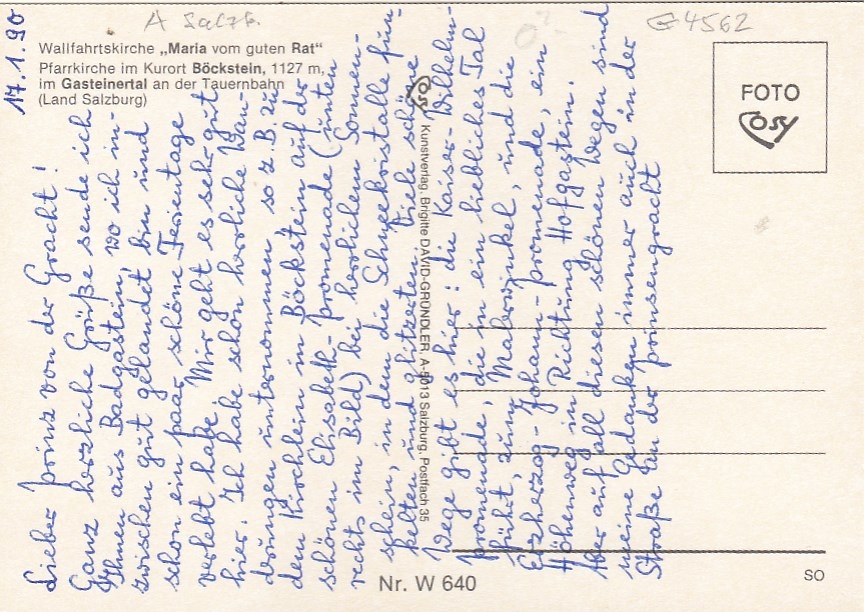 A Salzb.
G 4562
17.1.90
Wallfahrtskirche „Maria vom guten Rat"
Pfarrkirche im Kurort Böckstein, 1127 m,
im Gasteinertal an der Tauernbahn
(Land Salzburg)
FOTO
Cosy
Cosy
Kunstverlag Brigitte DAVID-GRÜNDLER, A-5013 Salzburg, Postfach 35
Lieber prinz von der Gracht!
Ganz herzliche Grüße sende ich
Ihnen aus Badgastein, wo ich in-
zwischen gut gelandet bin und
schon ein paar schöne Ferientage
verlebt habe. Mir geht es sehr gut
hier. Ich habe schön herrliche Wan-
drungen unternommen so z.B. zu
dem Kirchlein in Böckstein auf der
schönen Elisabeth-promenade (unten
rechts im Bild) bei herrlichem Sonnen-
schein, in dem die Schneekristalle fun-
kelten und glitzerten. Viele schöne
Wege gibt es hier: die Kaiser-Wilhelm-
promenade, die in ein liebliches Tal
führt, zum Malerwinkel, und die
Erzherzog-Johann-promenade, ein
Höhenweg in Richtung Hofgastein.
Aber auf all diesen schönen Wegen sind
meine Gedanken immer auch in der
Straße an der prinsengracht
Nr. W 640
SO